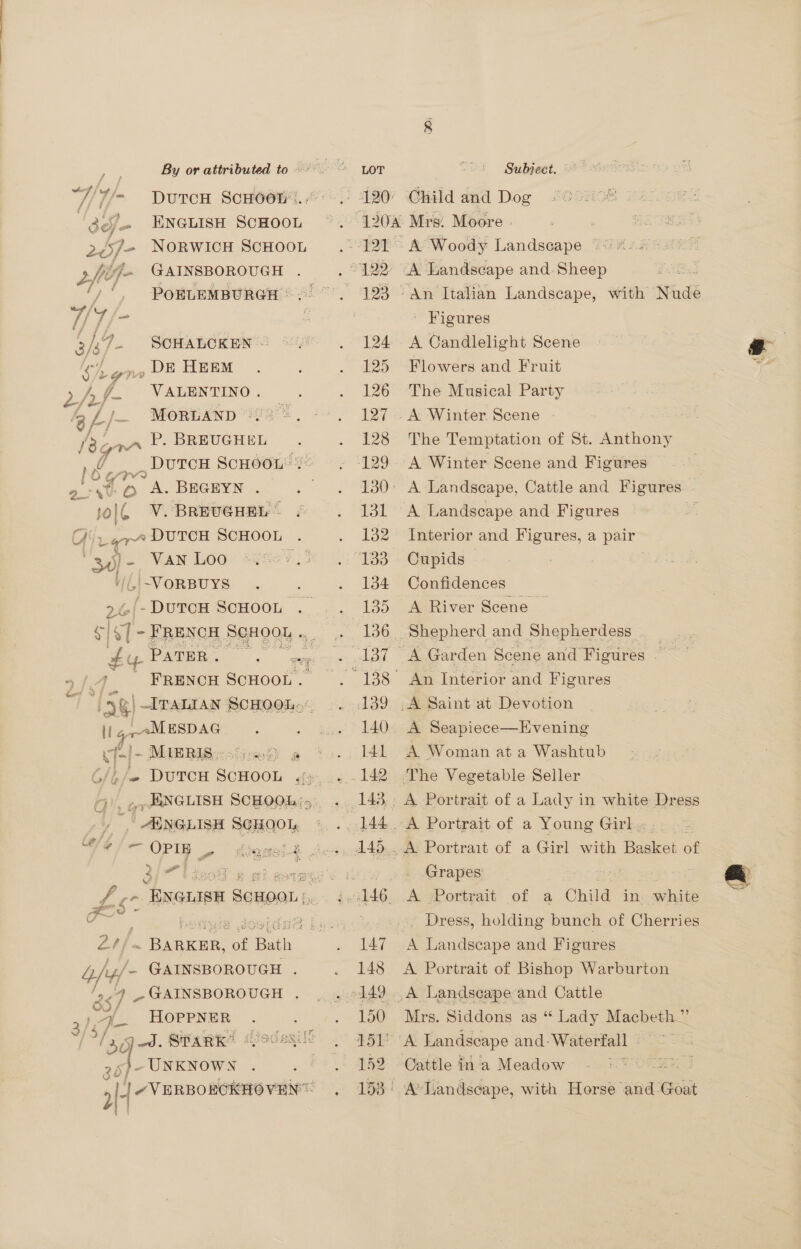 8
By or attributed to LOT Subject.
DUTCH SCHOOL . . 120 Child and Dog
ENGLISH SCHOOL . 120A Mrs. Moore
NORWICH SCHOOL . 121 A Woody Landscape
GAINSBOROUGH . . 122 A Landscape and Sheep
POELEMBURGH . . 123 An Italian Landscape, with Nude
Figures
SCHALCKEN . . 124 A Candlelight Scene
DE HEEM . . . 125 Flowers and Fruit
VALENTINO . . . 126 The Musical Party
MORLAND . . . 127 A Winter Scene
P. BREUGHEL . . 128 The Temptation of St. Anthony
DUTCH SCHOOL . . 129 A Winter Scene and Figures
A. BEGEYN . . . 130 A Landscape, Cattle and Figures
V. BREUGHEL . . 131 A Landscape and Figures
DUTCH SCHOOL . . 132 Interior and Figures, a pair
VAN LOO . . . 133 Cupids
VORBUYS . . . 134 Confidences
DUTCH SCHOOL . . 135 A River Scene
FRENCH SCHOOL . . 136 Shepherd and Shepherdess
PATER . . . 137 A Garden Scene and Figures
FRENCH SCHOOL . . 138 An Interior and Figures
ITALIAN SCHOOL . . 139 A Saint at Devotion
MESDAG . . . 140 A Seapiece—Evening
MIERIS . . . 141 A Woman at a Washtub
DUTCH SCHOOL . . 142 The Vegetable Seller
ENGLISH SCHOOL . . 143 A Portrait of a Lady in white Dress
ENGLISH SCHOOL . . 144 A Portrait of a Young Girl
OPIE . . . 145 A Portrait of a Girl with Basket of
Grapes
ENGLISH SCHOOL . . 146 A Portrait of a Child in white
Dress, holding bunch of Cherries
BARKER, of Bath . 147 A Landscape and Figures
GAINSBOROUGH . . 148 A Portrait of Bishop Warburton
GAINSBOROUGH . . 149 A Landscape and Cattle
HOPPNER . . . 150 Mrs. Siddons as “ Lady Macbeth ”
J. STARK . . . 151 A Landscape and Waterfall
UNKNOWN . . . 152 Cattle in a Meadow
VERBOECKHOVEN . 153 A Landscape, with Horse and Goat